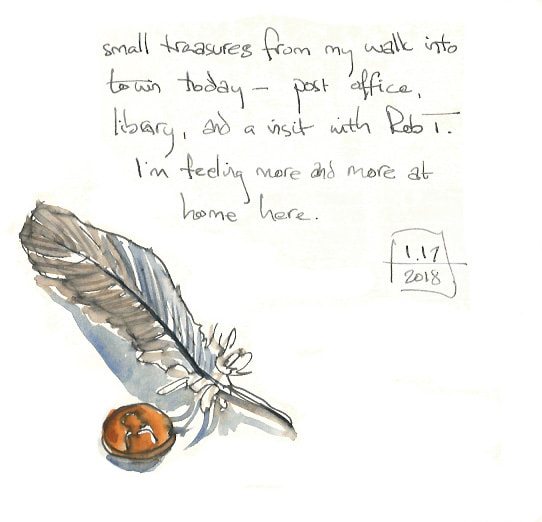 small treasures from my walk into
town today – post office,
library, and a visit with Rob T.
I'm feeling more and more at
home here.
1.17
2018